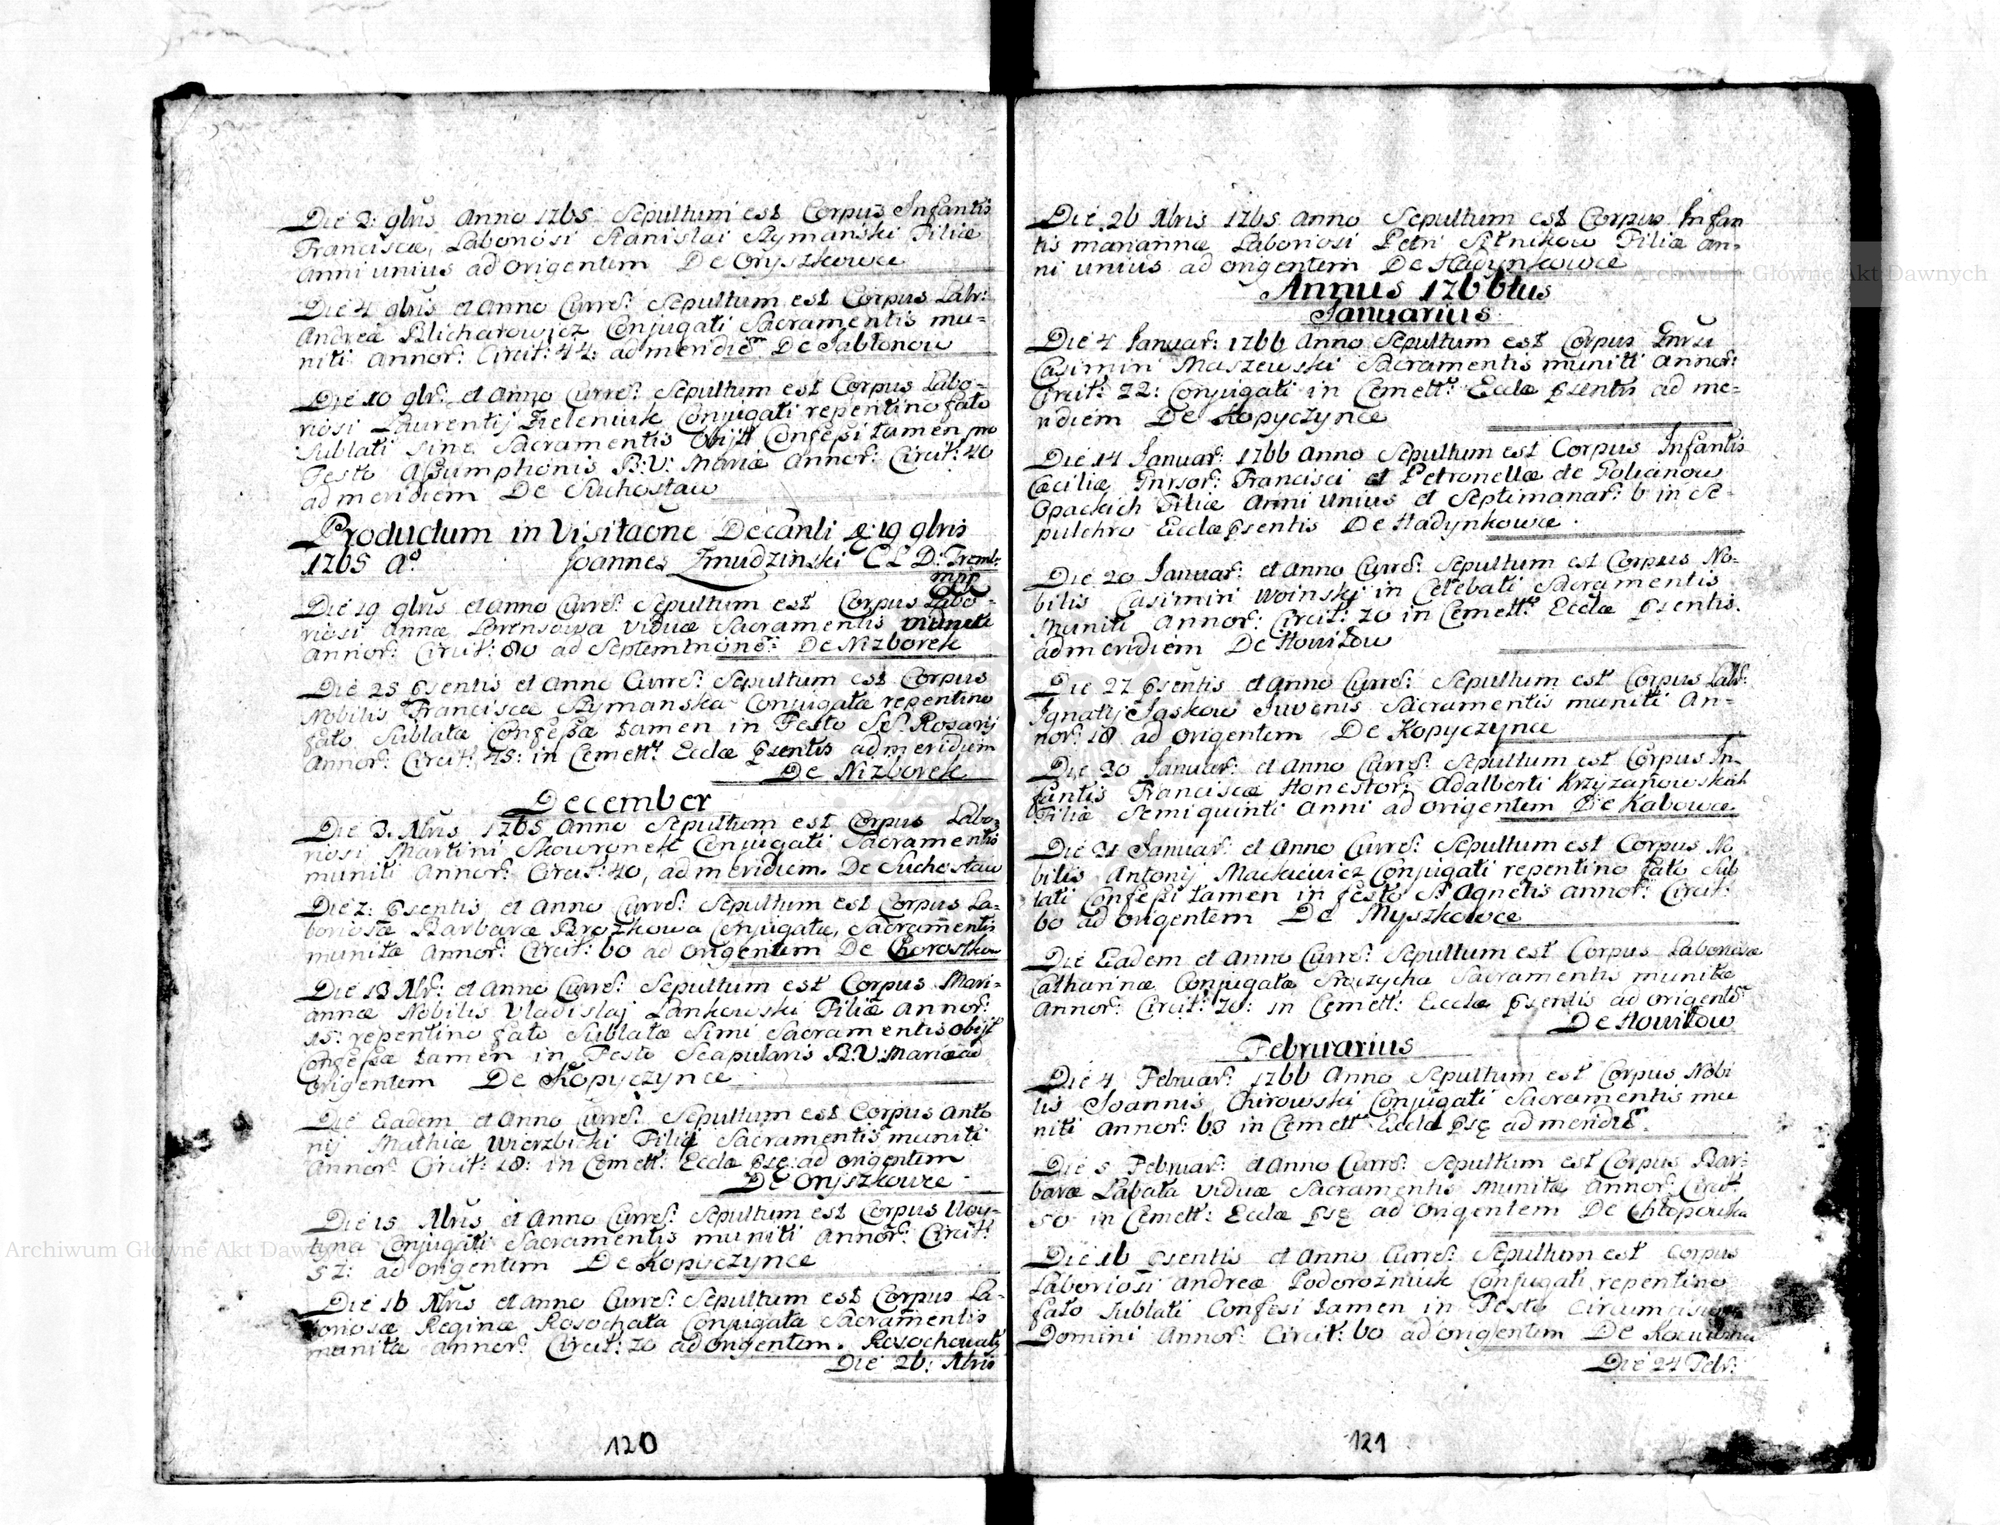 Die 2: 9bris Anno 1765 Sepultum est Corpus Infantis
Franciscæ, Laboriosi Stanislai Szymanski Filiæ
Anni unius ad origentem De Oryszkowce
Die 4 9bris et Anno Curre: Sepultum est Corpus Labr:
Andreæ Blicharowicz Conjugati Sacramentis mu-
niti Annor: Circit: 44: ad meridiē De Jabłonow
Die 10 9br: et Anno Curre: Sepultum est Corpus Labo-
riosi Laurentij Zieleniuk Conjugati repentino fato
Sublati Sine Sacramentis Obijt Confessi tamen pro
Festo Assumptionis B: V: Mariæ Annor: Circit: 40
ad meridiem De Suchostaw
Productum in Visitaōne Decanli 19 9bris
1765 Ao Joannes Zmudzinski C L D: Tremb:
mpp
Die 19 9bris et Anno Curre: Sepultum est Corpus Labo-
riosi Annæ Brensowa viduæ Sacramentis munitæ
Annor: Circit: 80 ad Septemtrione: De Nizborek
Die 25 Psentis et Anno Curre: Sepultum est Corpus
Nobilis Franciscæ Szymanska Conjugatæ repentino
fato Sublatæ Confessæ tamen in Festo SS: Rosarij
Annor: Circit: 45: in Cemett: Eccłæ Psentis ad meridiem
De Nizborek
December
Die 3. Xbris 1765 Anno Sepultum est Corpus Labo-
riosi Martini Skowronek Conjugati Sacramentis
muniti Annor: Circit: 40, ad meridiem. De Suchostaw
Die 7: Psentis et Anno Curre: Sepultum est Corpus La-
boriosæ Barbaræ Brozkowa Conjugatæ, Sacramentis
munitæ Annor: Circit: 60 ad origentem De Chorostkow
Die 13 Xbr: et Anno Curre: Sepultum est Corpus Mari-
annæ Nobilis Vladislaj Lankowski Filiæ Annor:
15: repentino fato Sublatæ Simi Sacramentis obijt
Confessæ tamen in Festo Scapularis B: V: Mariæ ad
origentem De Kopyczynce
Die Eadem et Anno Curre: Sepultum est Corpus Anto
nij Mathiæ Wierzbicki Filij Sacramentis muniti
Annor: Circit: 18: in Cemett: Eccłæ Psę: ad origentem
De Oryszkowce
Die 15 Xbris et Anno Curre: Sepultum est Corpus Woy-
tyna Conjugati Sacramentis muniti Annor: Circit:
52: ad origentem De Kopyczynce
Die 16 Xbris et Anno Curre: Sepultum est Corpus La-
boriosæ Reginæ Rosochata Conjugatæ Sacramentis
munitæ Annor: Circit: 70 ad origentem. Rosochowatj
Die 26: Xbris
120
Die 26 Xbris 1765 Anno Sepultum est Corpus Infan
tis mariannæ Laboriosi Petri Sitnikow Filiæ an-
ni unius ad origentem De Hadynkowce
Annus 1766tus
Januarius
Die 4 Januar: 1766 Anno Sepultum est Corpus Gnrsi
Casimiri Maszewski Sacramentis muniti Annor:
Circit: 72: Conjugati in Cemett: Eccłæ Psentis ad me-
ridiem De Kopyczynce
Die 14 Januar: 1766 Anno Sepultum est Corpus Infantis
Cæciliæ Gnrsor: Francisci et Petronellæ de Polianow
Opackich Filiæ Anni Unius et Septimanar: 6 in Se-
pulchro Eccłæ Psentis De Hadynkowce.
Die 20 Januar: et Anno Curre: Sepultum est Corpus No-
bilis Casimiri Woinskj in Celebati Sacramentis
Muniti Annor: Circit: 70 in Cemett: Eccłæ Psentis.
ad meridiem De Howiłow
Die 27 Psentis et Anno Curre: Sepultum est Corpus Labr:
Ignatij Jaskow Juvenis Sacramentis muniti An-
nor: 18 ad origentem De Kopyczynce
Die 30 Januar: et Anno Curre: Sepultum est Corpus In-
fantis Franciscæ Honestor: Adalberti Krzyzanowskich
Filiæ Semi quinti Anni ad origentem De Kabowce.
Die 21 Januar: et Anno Curre: Sepultum est Corpus No
bilis Antonij Mackiewicz Conjugati repentino fato Sub
lati Confessi tamen in festo S: Agnetis Annor: Circit:
60 ad origentem De Myszkowce
Die Eadem et Anno Curre: Sepultum est Corpus Laboriosæ
Catharinæ Conjugatæ Sacramentis munitæ
Annor: Circit: 70: in Cemett: Eccłæ Psentis ad origentē
De Howiłow
Februarius
Die 4 Februar: 1766 Anno Sepultum est Corpus Nobi
lis Joannis Chirowski Conjugati Sacramentis mu
niti Annor: 63 in Cemett: Eccłæ Psę ad meridiē.
Die 5 Februar: et Anno Curre: Sepultum est Corpus Bar-
baræ Labata viduæ Sacramentis Munitæ Annor: Circit:
50 in Cemett: Eccłæ Psę ad origentem De Chłopowka
Die 16 Psentis et Anno Curre: Sepultum est Corpus
Laboriosi Andreæ Podorozniuk Conjugati repentino
fato Sublati Confesi tamen in Festo Circumcisionis
Domini Annor: Circit: 60 ad origentem De
Die 24 Febr:
121
Archiwum Główne Akt Dawnych
Archiwum Główne Akt Dawnych